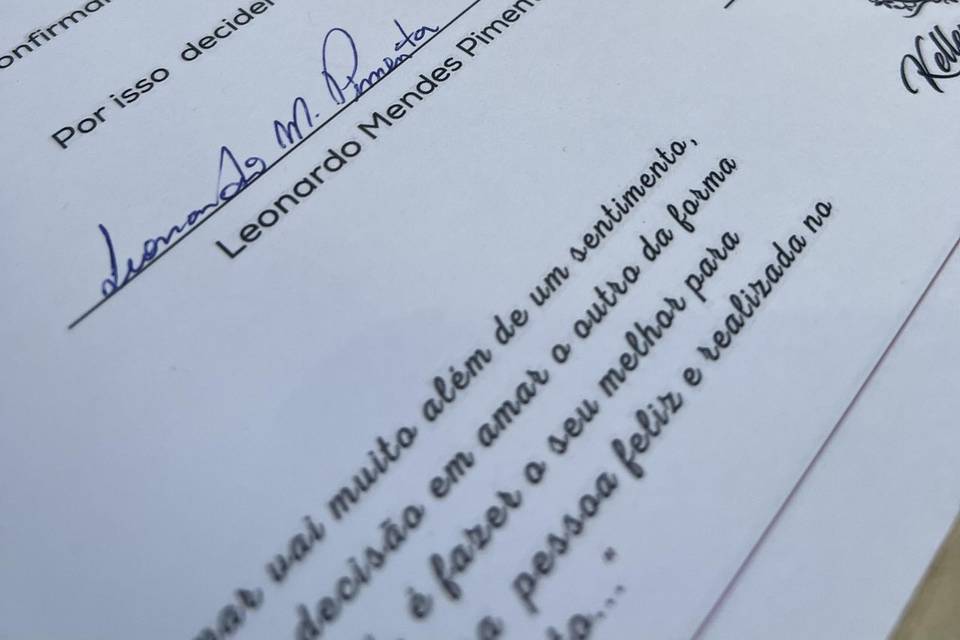 Por isso decide
Leonardo M. Pimenta
Leonardo Mendes Pimen
Kelle
mar vai muito além de um sentimento,
decisão em amar o outro da forma
é fazer o seu melhor para
a pessoa feliz e realizada no
to... "